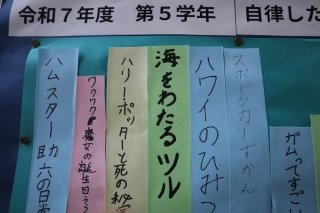 令和7年度 第5学年 自律した
ハムスターカ
助六の日常
ワクワク魔女の誕生日
ハリーポッターと死の秘
海をわたるツル
ハワイのひみつ
スポーツカーずかん
ガムってすごい